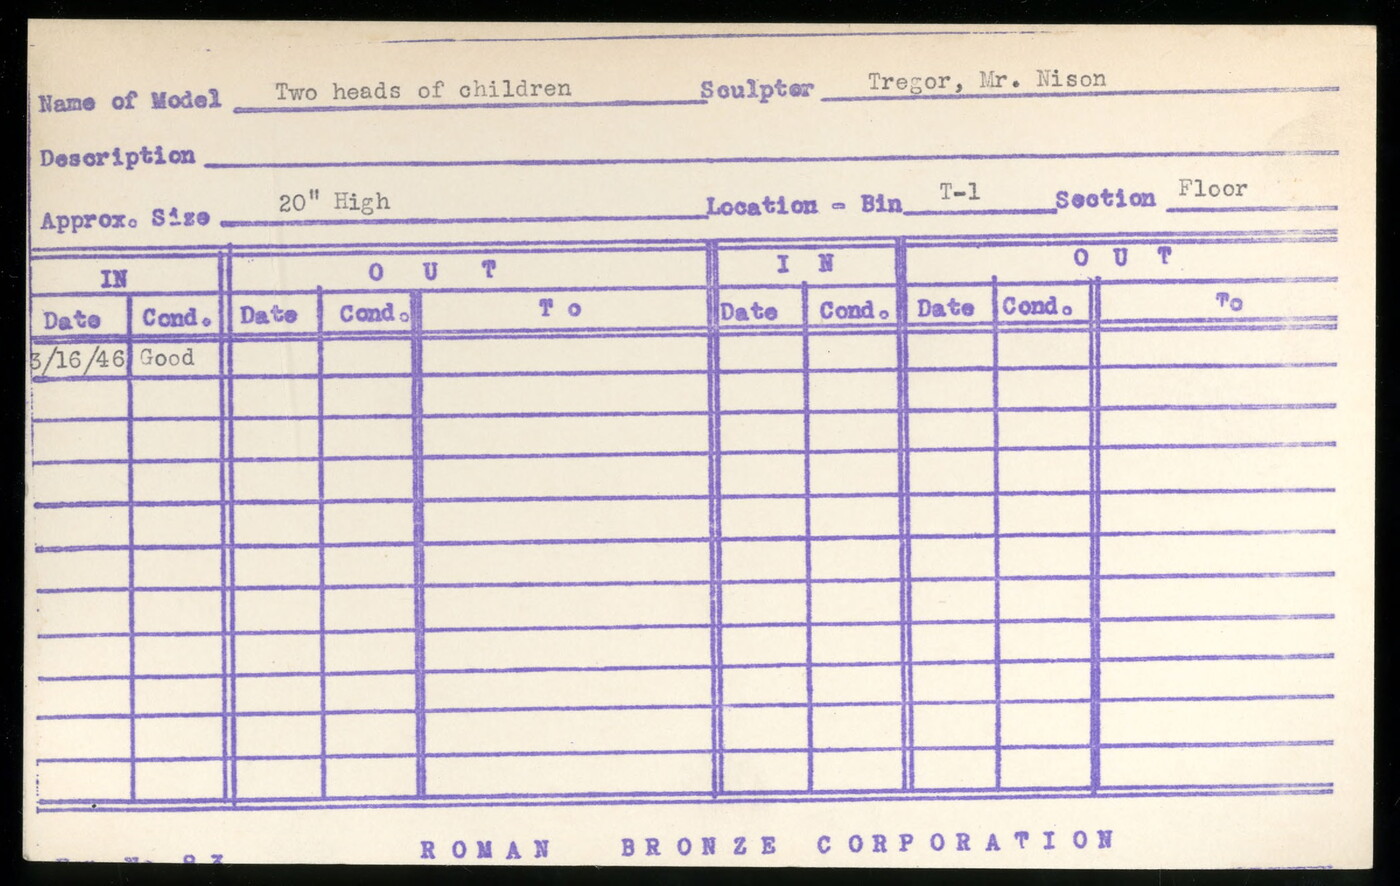 Name of Model Two heads of children Sculptor Tregor, Mr. Nison
Description
Approx. Size 20" High Location - Bin T-1 Section Floor
IN OUT IN OUT
Date Cond. Date Cond. TO Date Cond. Date Cond. To
3/16/46 Good
ROMAN BRONZE CORPORATION